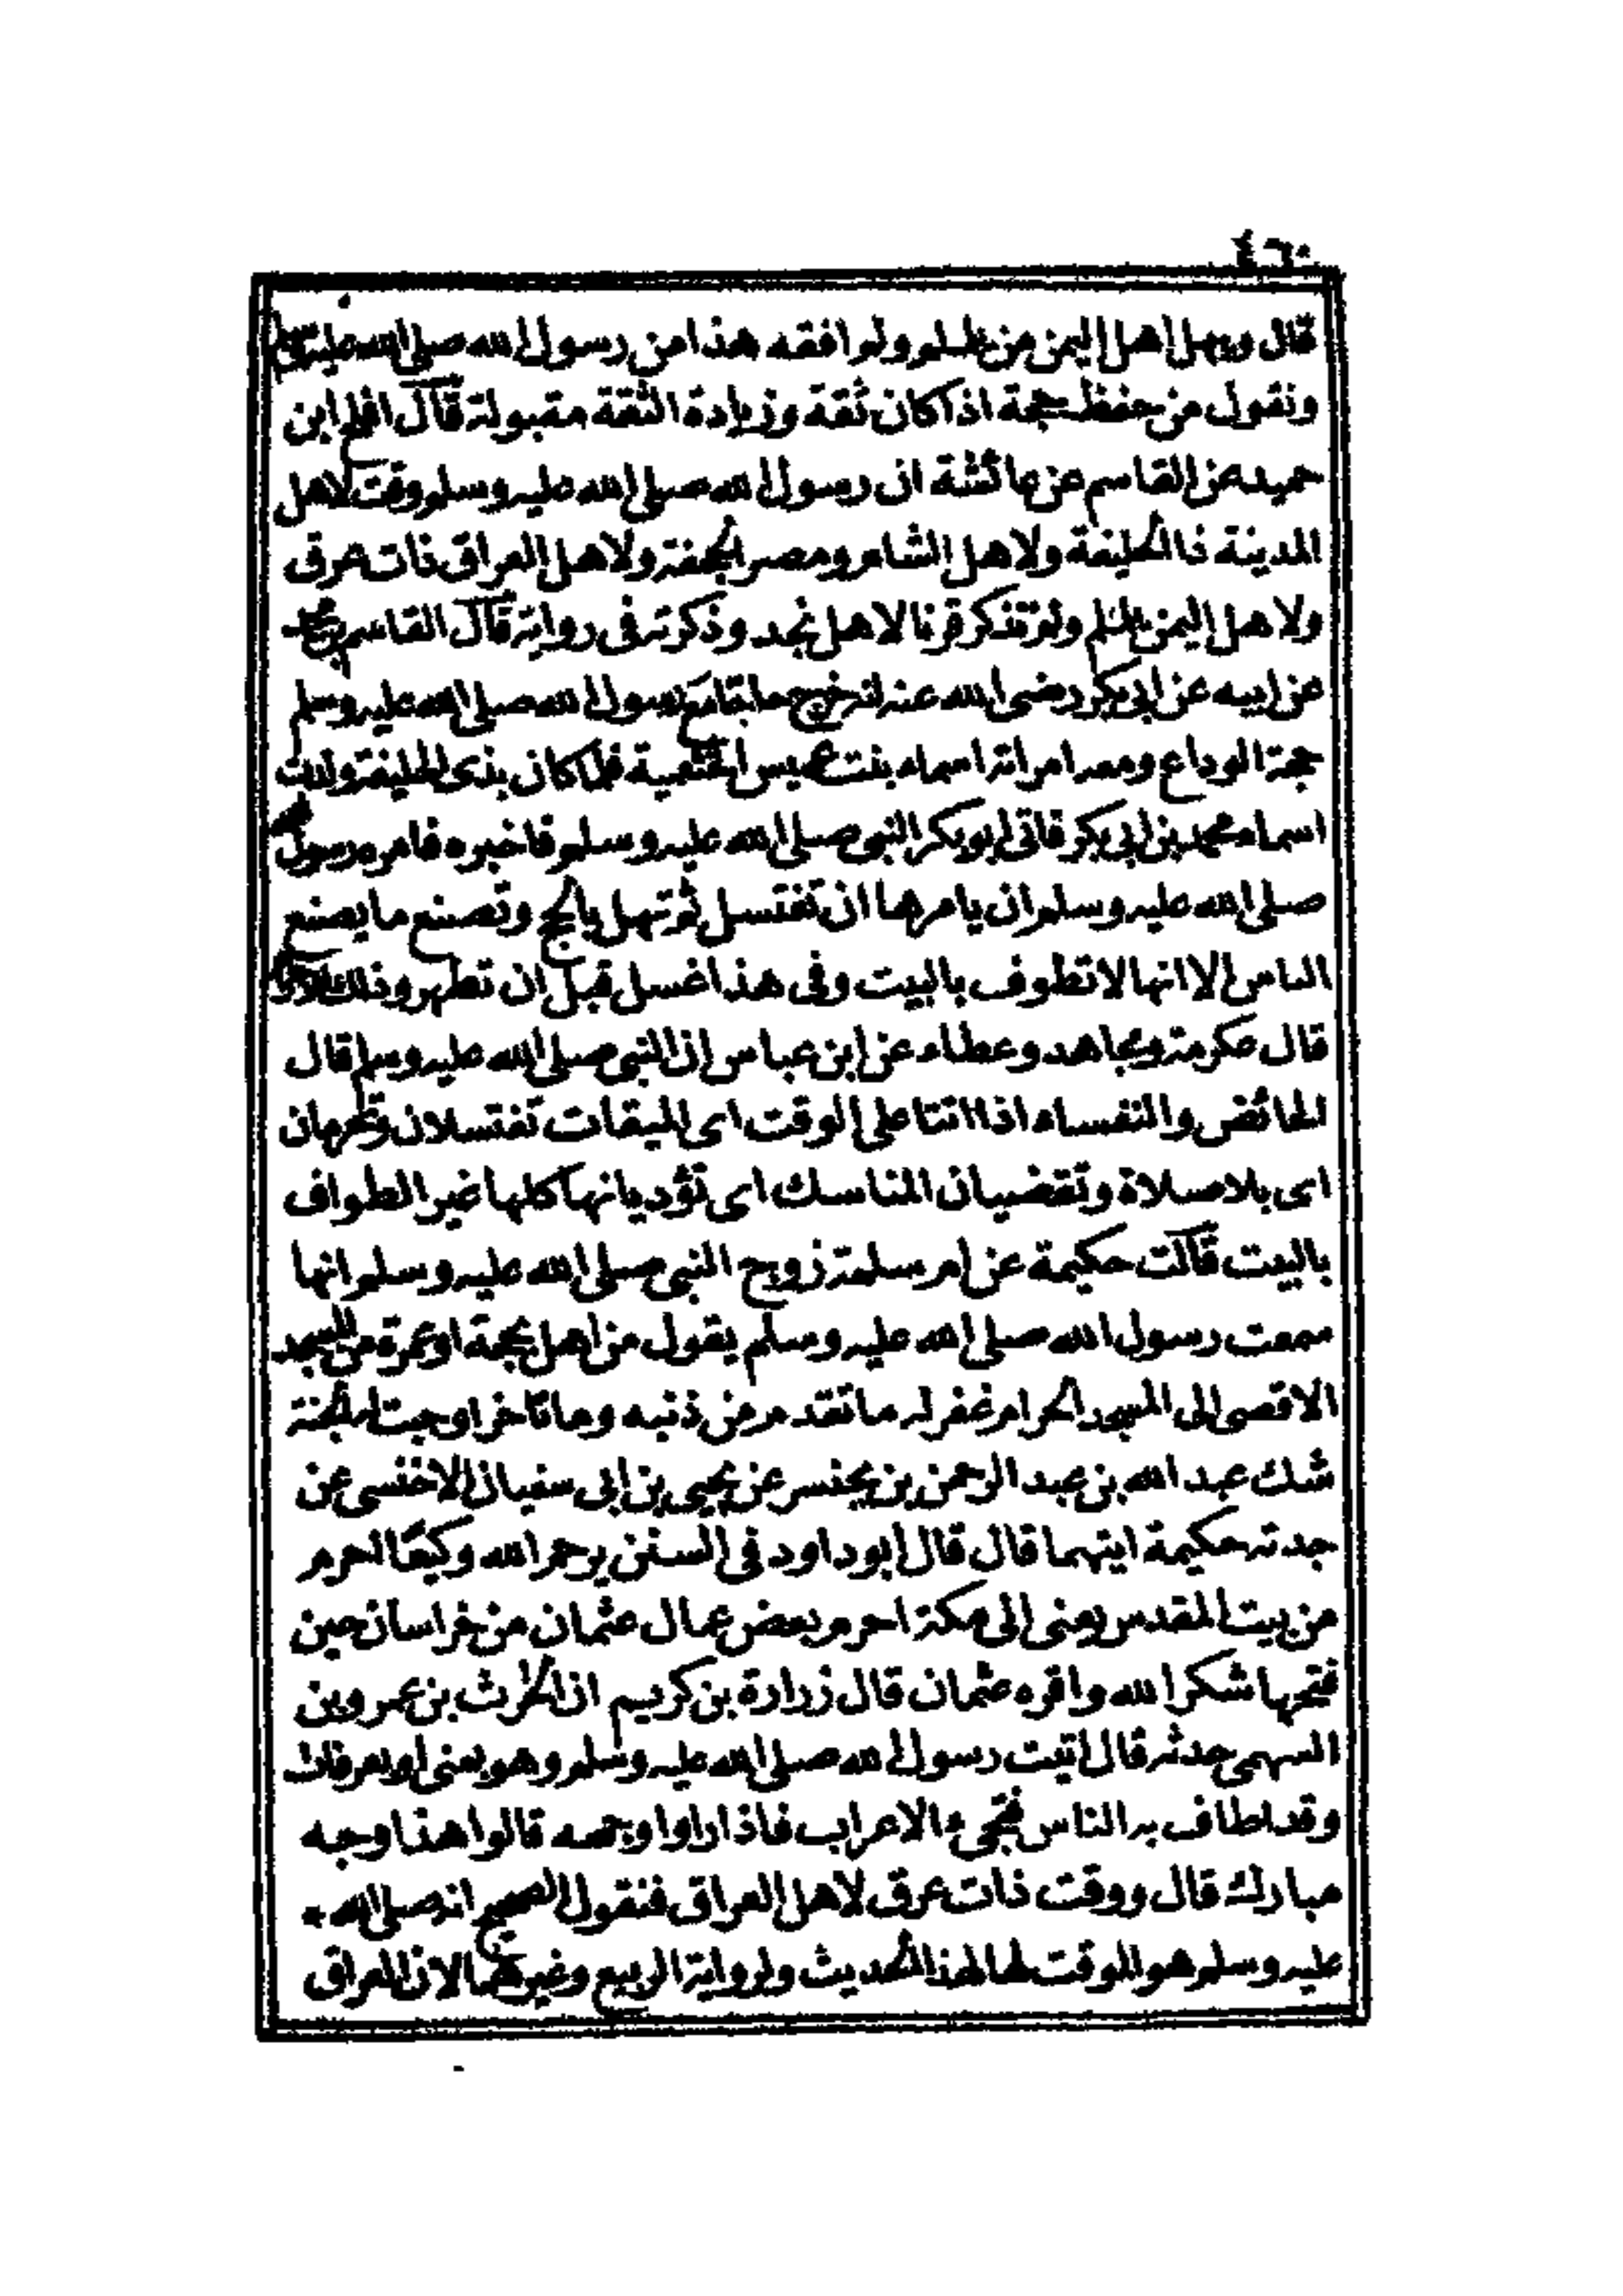 ٤٦٠
قال ويهل اهل اليمن من يلملم ولم افقه هذا من رسول الله صلى الله عليه وسلم
ونقول من حفظ حجة اذا كان ثقة وزيادة الثقة مقبولة قال افلح ابن
حميد عن القاسم عن عائشة ان رسول الله صلى الله عليه وسلم وقت لاهل
المدينة ذا الحليفة ولاهل الشام ومصر الجحفة ولاهل العراق ذات عرق
ولاهل اليمن يلملم ولم تذكر قرنا لاهل نجد وذكرته فى رواية قال القاسم بن محمد
عن ابيه عن ابى بكر رضى الله عنه انه خرج حاجا مع رسول الله صلى الله عليه وسلم
حجة الوداع ومعه امراته اسماء بنت عميس الخثعمية فلما كان بذى الحليفة ولدت
اسماء محمد بن ابى بكر فاتى ابو بكر النبى صلى الله عليه وسلم فاخبره فامره رسول الله
صلى الله عليه وسلم ان يامرها ان تغتسل ثم تهل بالحج وتصنع ما يصنع
الناس الا انها لا تطوف بالبيت وفى هذا غسل قبل ان تطهر وذلك
قال عكرمة ومجاهد وعطاء عن ابن عباس ان النبى صلى الله عليه وسلم قال
الحائض والنفساء اذا اتتا على الوقت اى الميقات تغتسلان وتحرمان
اى بلا صلاة وتقضيان المناسك اى تؤديانها كلها غير الطواف
بالبيت قالت حكيمة عن ام سلمة زوج النبى صلى الله عليه وسلم انها
سمعت رسول الله صلى الله عليه وسلم يقول من اهل بحجة او عمرة من المسجد
الاقصى الى المسجد الحرام غفر له ما تقدم من ذنبه وما تاخر او وجبت له الجنة
شك عبد الله بن عبد الرحمن بن يحنسر عن يحيى بن ابى سفيان الاخنسى عن
جدته حكيمة ايتهما قال قال ابو داود فى السنن يرحم الله وكيعًا احرم
من بيت المقدس يعنى الى مكة احرم بعض عمال عثمان من خراسان حين
فتحها شكرا لله واقره عثمان قال زرارة بن كريم ان الحرث بن عمرو بن
السهمى حدثه قال اتيت رسول الله صلى الله عليه وسلم وهو بمنى او بعرفات
وقد اطاف به الناس فتجىء الاعراب فاذا راوا وجهه قالوا هذا وجه
مبارك قال ووقت ذات عرق لاهل العراق فنقول الصحيح انه صلى الله
عليه وسلم هو الموقت لها لهذا الحديث ولرواية الربيع وغيرهما لان العراق